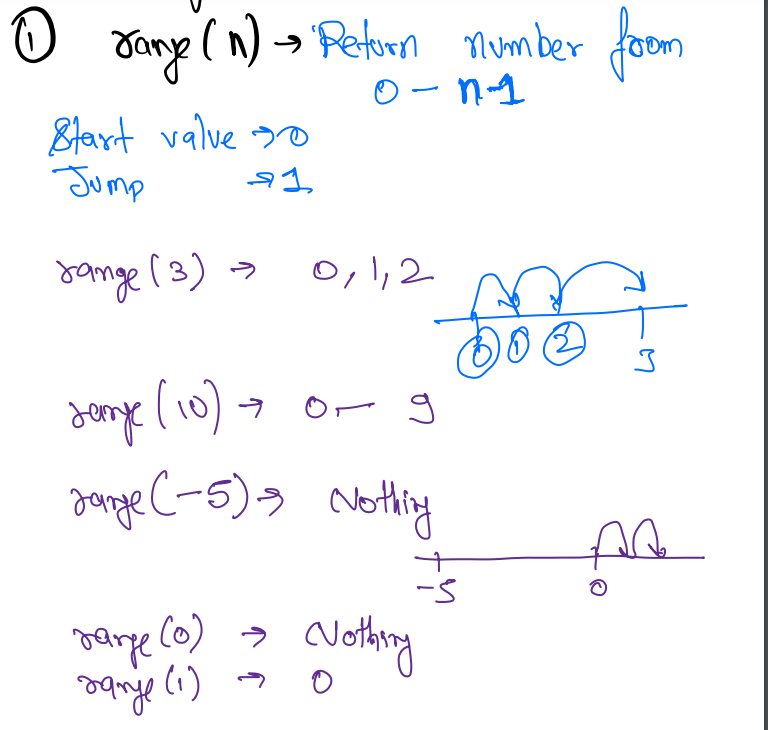 ① range(n) → Return number from
0 – n-1
Start value → 0
Jump → 1
range(3) → 0, 1, 2
0 1 2 3
range(10) → 0 – 9
range(-5) → Nothing
-5 0
range(0) → Nothing
range(1) → 0